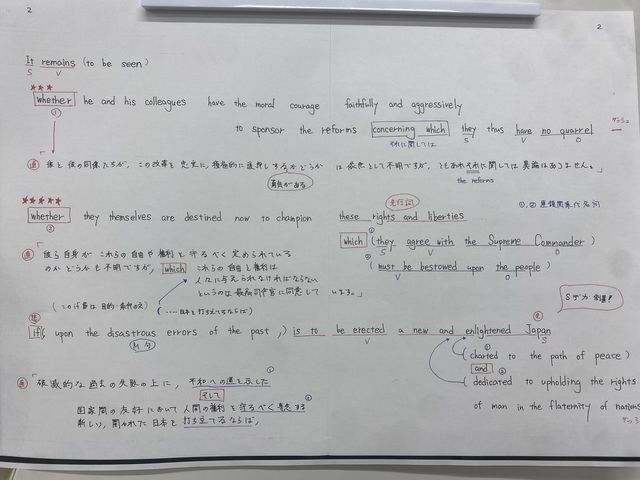 2
2
It remains (to be seen)
S V
★★★
whether he and his colleagues have the moral courage faithfully and aggressively
①
to sponsor the reforms concerning which they thus have no quarrel
それに関しては S V O
直 「彼と彼の同僚たちが、この改革を忠実に、積極的に後押しする かどうか は依然として不明ですが、ともあれそれに関しては異論はありません。」
勇気がある
the reforms
★★★★★
先行詞
①,② 連鎖関係代名詞
whether they themselves are destined now to champion these rights and liberties
②
which ① (they agree with the Supreme Commander)
S V O
② (must be bestowed upon the people)
V O
直 「彼ら自身が これらの自由や権利を守るべく定められている
のかどうかも不明ですが、 which これらの自由と権利は
人々に与えられなければならない
というのは最高司令官に同意して います。」
(このif節は目的・条件の文) (....日本を打ち立てるならば)
Sデカ 倒置!
if (, upon the disastrous errors of the past,) is to be erected a new and enlightened Japan
M句 V S
① (charted to the path of peace)
and
② (dedicated to upholding the rights
of man in the flaternity of nations
直 「破滅的な過去の失敗の上に、平和への道を示した ①
そして
国家間の友好において 人間の権利を守るべく専念する ②
新しい、開かれた日本を打ち立てるならば、